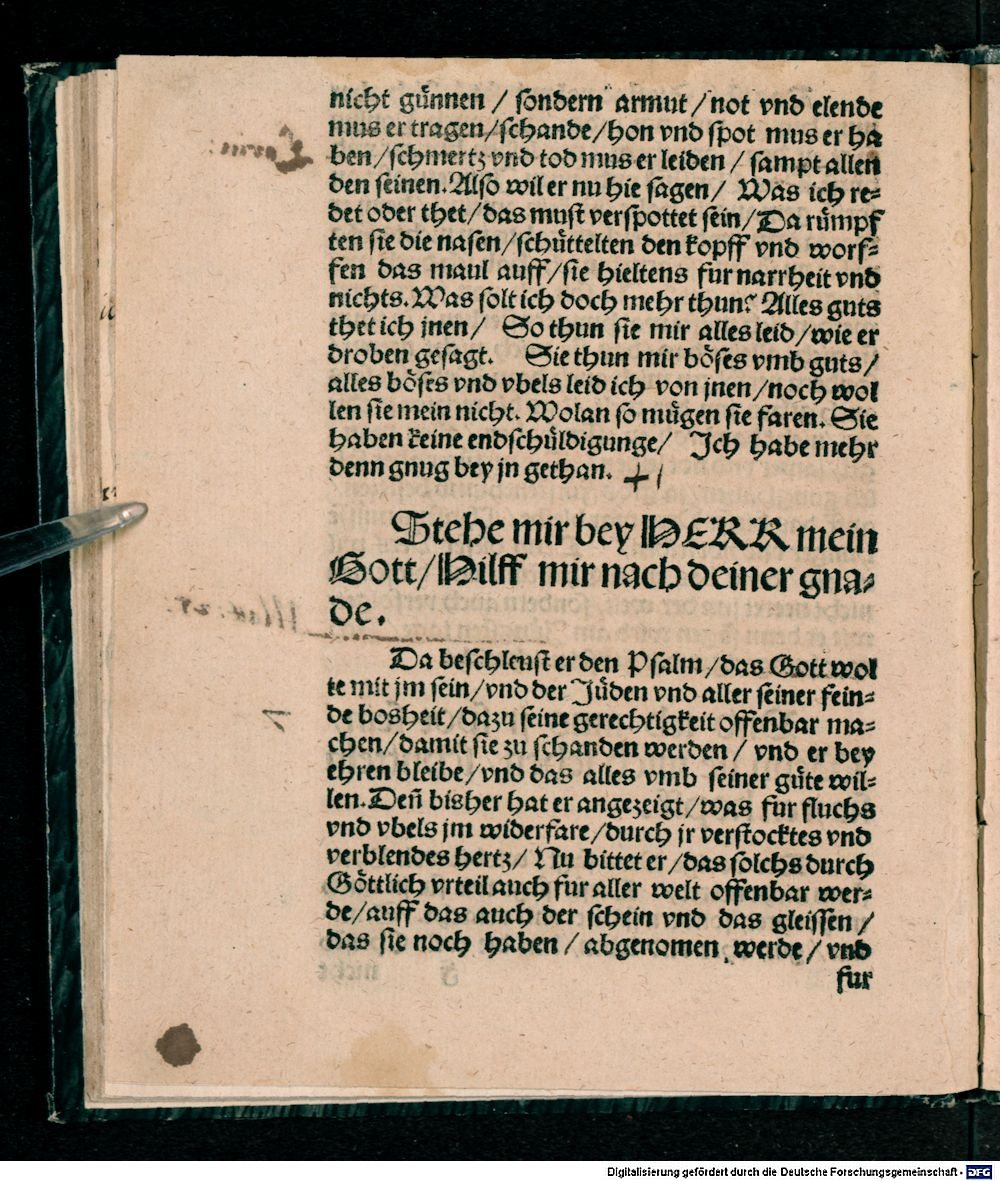 nicht günnen / sondern armut / not vnd elende
mus er tragen/schande/hon vnd spot mus er ha
ben/schmertz vnd tod mus er leiden / sampt allen
den seinen. Also wil er nu hie sagen/ Was ich re-
det oder thet/das must verspottet sein/Da rümpf
ten sie die nasen/schüttelten den kopff vnd worf-
fen das maul auff/sie hieltens fur narrheit vnd
nichts. Was solt ich doch mehr thun? Alles guts
thet ich jnen/ So thun sie mir alles leid/wie er
droben gesagt. Sie thun mir böses vmb guts/
alles böses vnd vbels leid ich von jnen/noch wol
len sie mein nicht. Wolan so mügen sie faren. Sie
haben keine endschüldigunge/ Ich habe mehr
denn gnug bey jn gethan.
Stehe mir bey HERR mein
Gott/Hilff mir nach deiner gna-
de.
Da beschleust er den Psalm/das Gott wol
te mit jm sein/vnd der Jüden vnd aller seiner fein-
de bosheit/dazu seine gerechtigkeit offenbar ma-
chen/damit sie zu schanden werden / vnd er bey
ehren bleibe/vnd das alles vmb seiner güte wil-
len. Deñ bisher hat er angezeigt/was fur fluchs
vnd vbels jm widerfare/durch jr verstocktes vnd
verblendes hertz/ Nu bittet er/das solchs durch
Göttlich vrteil auch fur aller welt offenbar wer-
de/auff das auch der schein vnd das gleissen /
das sie noch haben / abgenomen werde/ vnd
fur
Digitalisierung gefördert durch die Deutsche Forschungsgemeinschaft - DFG